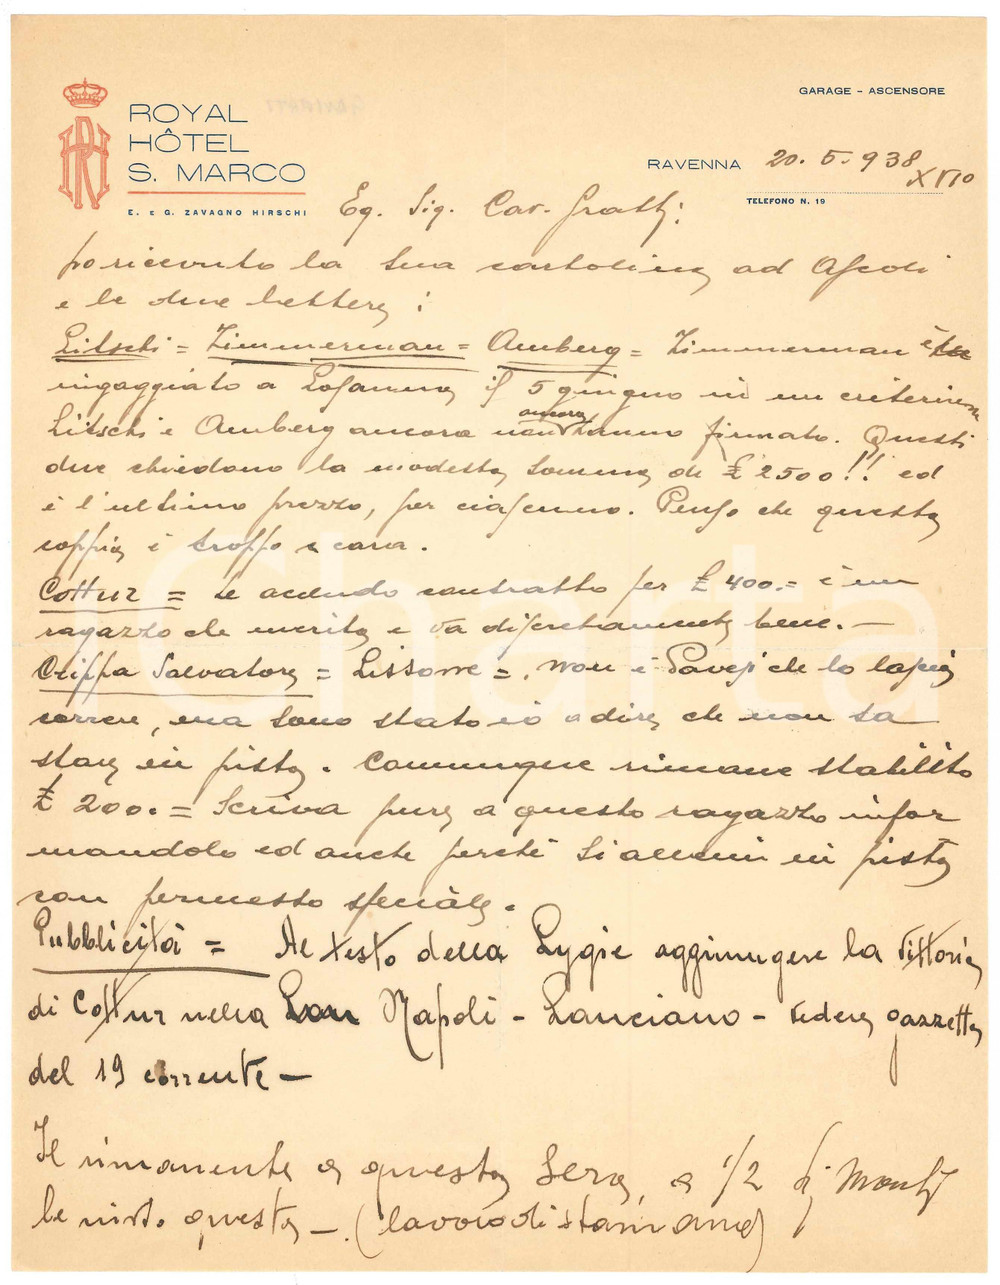 GARAGE - ASCENSORE
ROYAL
HÔTEL
S. MARCO
E. E G. ZAVAGNO HIRSCHI
RAVENNA 20. 5. 938
XVI°
TELEFONO N. 19
Eg. Sig. Cav. Gratti:
ho ricevuto la sua cartolina ad Ascoli
e le due lettere:
Litschi = Zimmerman = Amberg = Zimmerman è
ingaggiato a Losanna il 5 giugno in un criterium
Litschi e Amberg ancora non ancora hanno firmato. Questi
due chiedono la modesta somma di £ 2500!! ed
è l'ultimo prezzo, per ciascuno. Penso che questa
coppia è troppo cara.
Cottur = Le accludo contratto per £ 400.= è un
ragazzo che merita e va discretamente bene.—
Crippa Salvatore = Lissone =. non è Pavesi che lo lascia
correre, ma sono stato io a dire che non sa
stare in pista. Comunque rimane stabilito
£ 200.= Scriva pure a questo ragazzo infor
mandolo ed anche perché si alleni in pista
con permesso speciale.
Pubblicità = Al testo della Lygie aggiungere la vittoria
di Cottur nella Napoli - Lanciano - vedere gazzetta
del 19 corrente —
Il rimanente a questa sera, a 1/2
le invio questa —. (lavoro di stamane)
Charta